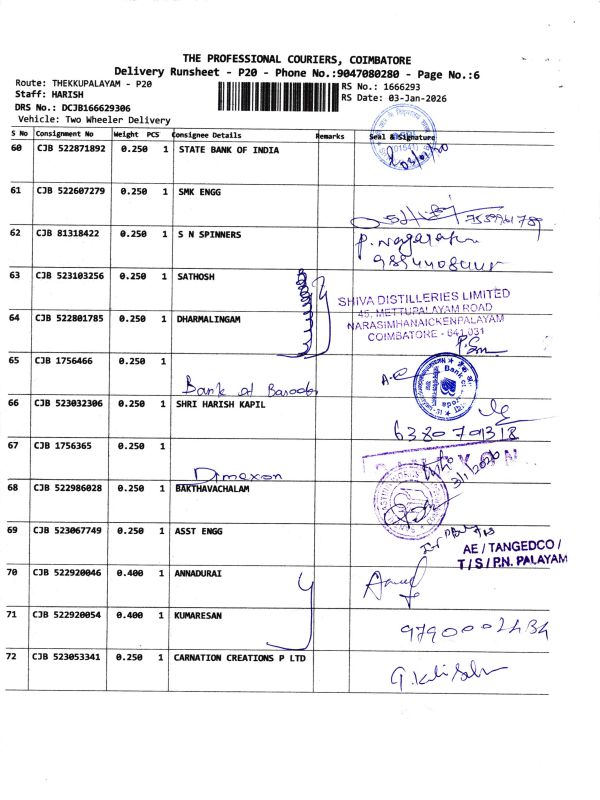 THE PROFESSIONAL COURIERS, COIMBATORE
Delivery Runsheet - P20 - Phone No.:9047080280 - Page No.:6
Route: THEKKUPALAYAM - P20
RS No.: 1666293
Staff: HARISH
RS Date: 03-Jan-2026
DRS No.: DCJB166629306
Vehicle: Two Wheeler Delivery
S No Consignment No Weight PCS Consignee Details Remarks Seal & Signature
60 CJB 522871892 0.250 1 STATE BANK OF INDIA
61 CJB 522607279 0.250 1 SMK ENGG
62 CJB 81318422 0.250 1 S N SPINNERS
P. Nagaraj
63 CJB 523103256 0.250 1 SATHOSH
SHIVA DISTILLERIES LIMITED
45, METTUPALAYAM ROAD
64 CJB 522801785 0.250 1 DHARMALINGAM
NARASIMHANAICKENPALAYAM
COIMBATORE - 641 031
65 CJB 1756466 0.250 1
Bank of Baroda
66 CJB 523032306 0.250 1 SHRI HARISH KAPIL
6380701318
67 CJB 1756365 0.250 1
Dimexon
3/1/2026
68 CJB 522986028 0.250 1 BAKTHAVACHALAM
69 CJB 523067749 0.250 1 ASST ENGG
AE / TANGEDCO /
T / S / P.N. PALAYAM
70 CJB 522920046 0.400 1 ANNADURAI
71 CJB 522920054 0.400 1 KUMARESAN
9790002434
72 CJB 523053341 0.250 1 CARNATION CREATIONS P LTD